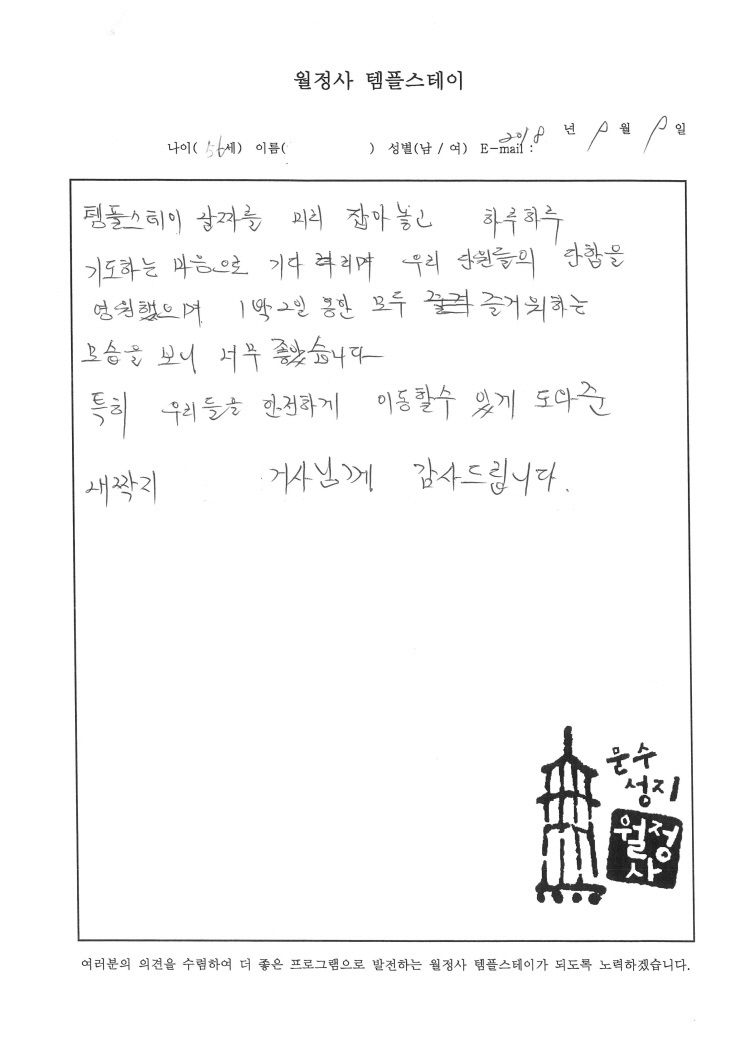 월정사 템플스테이
2018 년 9 월 9 일
나이( 56세) 이름( ) 성별(남 / 여) E-mail :
템플스테이 날짜를 미리 잡아 놓고 하루하루
기도하는 마음으로 기다 리며 우리 단원들의 단합을
염원했으며 1박2일 동안 모두 즐거워하는
모습을 보니 너무 좋았습니다
특히 우리들을 안전하게 이동할수 있게 도와준
새짝지 거사님께 감사드립니다.
문수
성지
월정
사
여러분의 의견을 수렴하여 더 좋은 프로그램으로 발전하는 월정사 템플스테이가 되도록 노력하겠습니다.